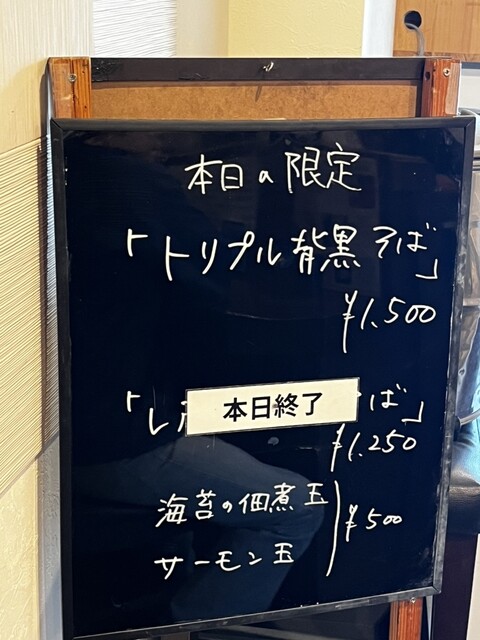 本日の限定
「トリプル背黒そば」
¥1.500
「レ
本日終了
ば」
¥1.250
海苔の佃煮玉
サーモン玉
¥500